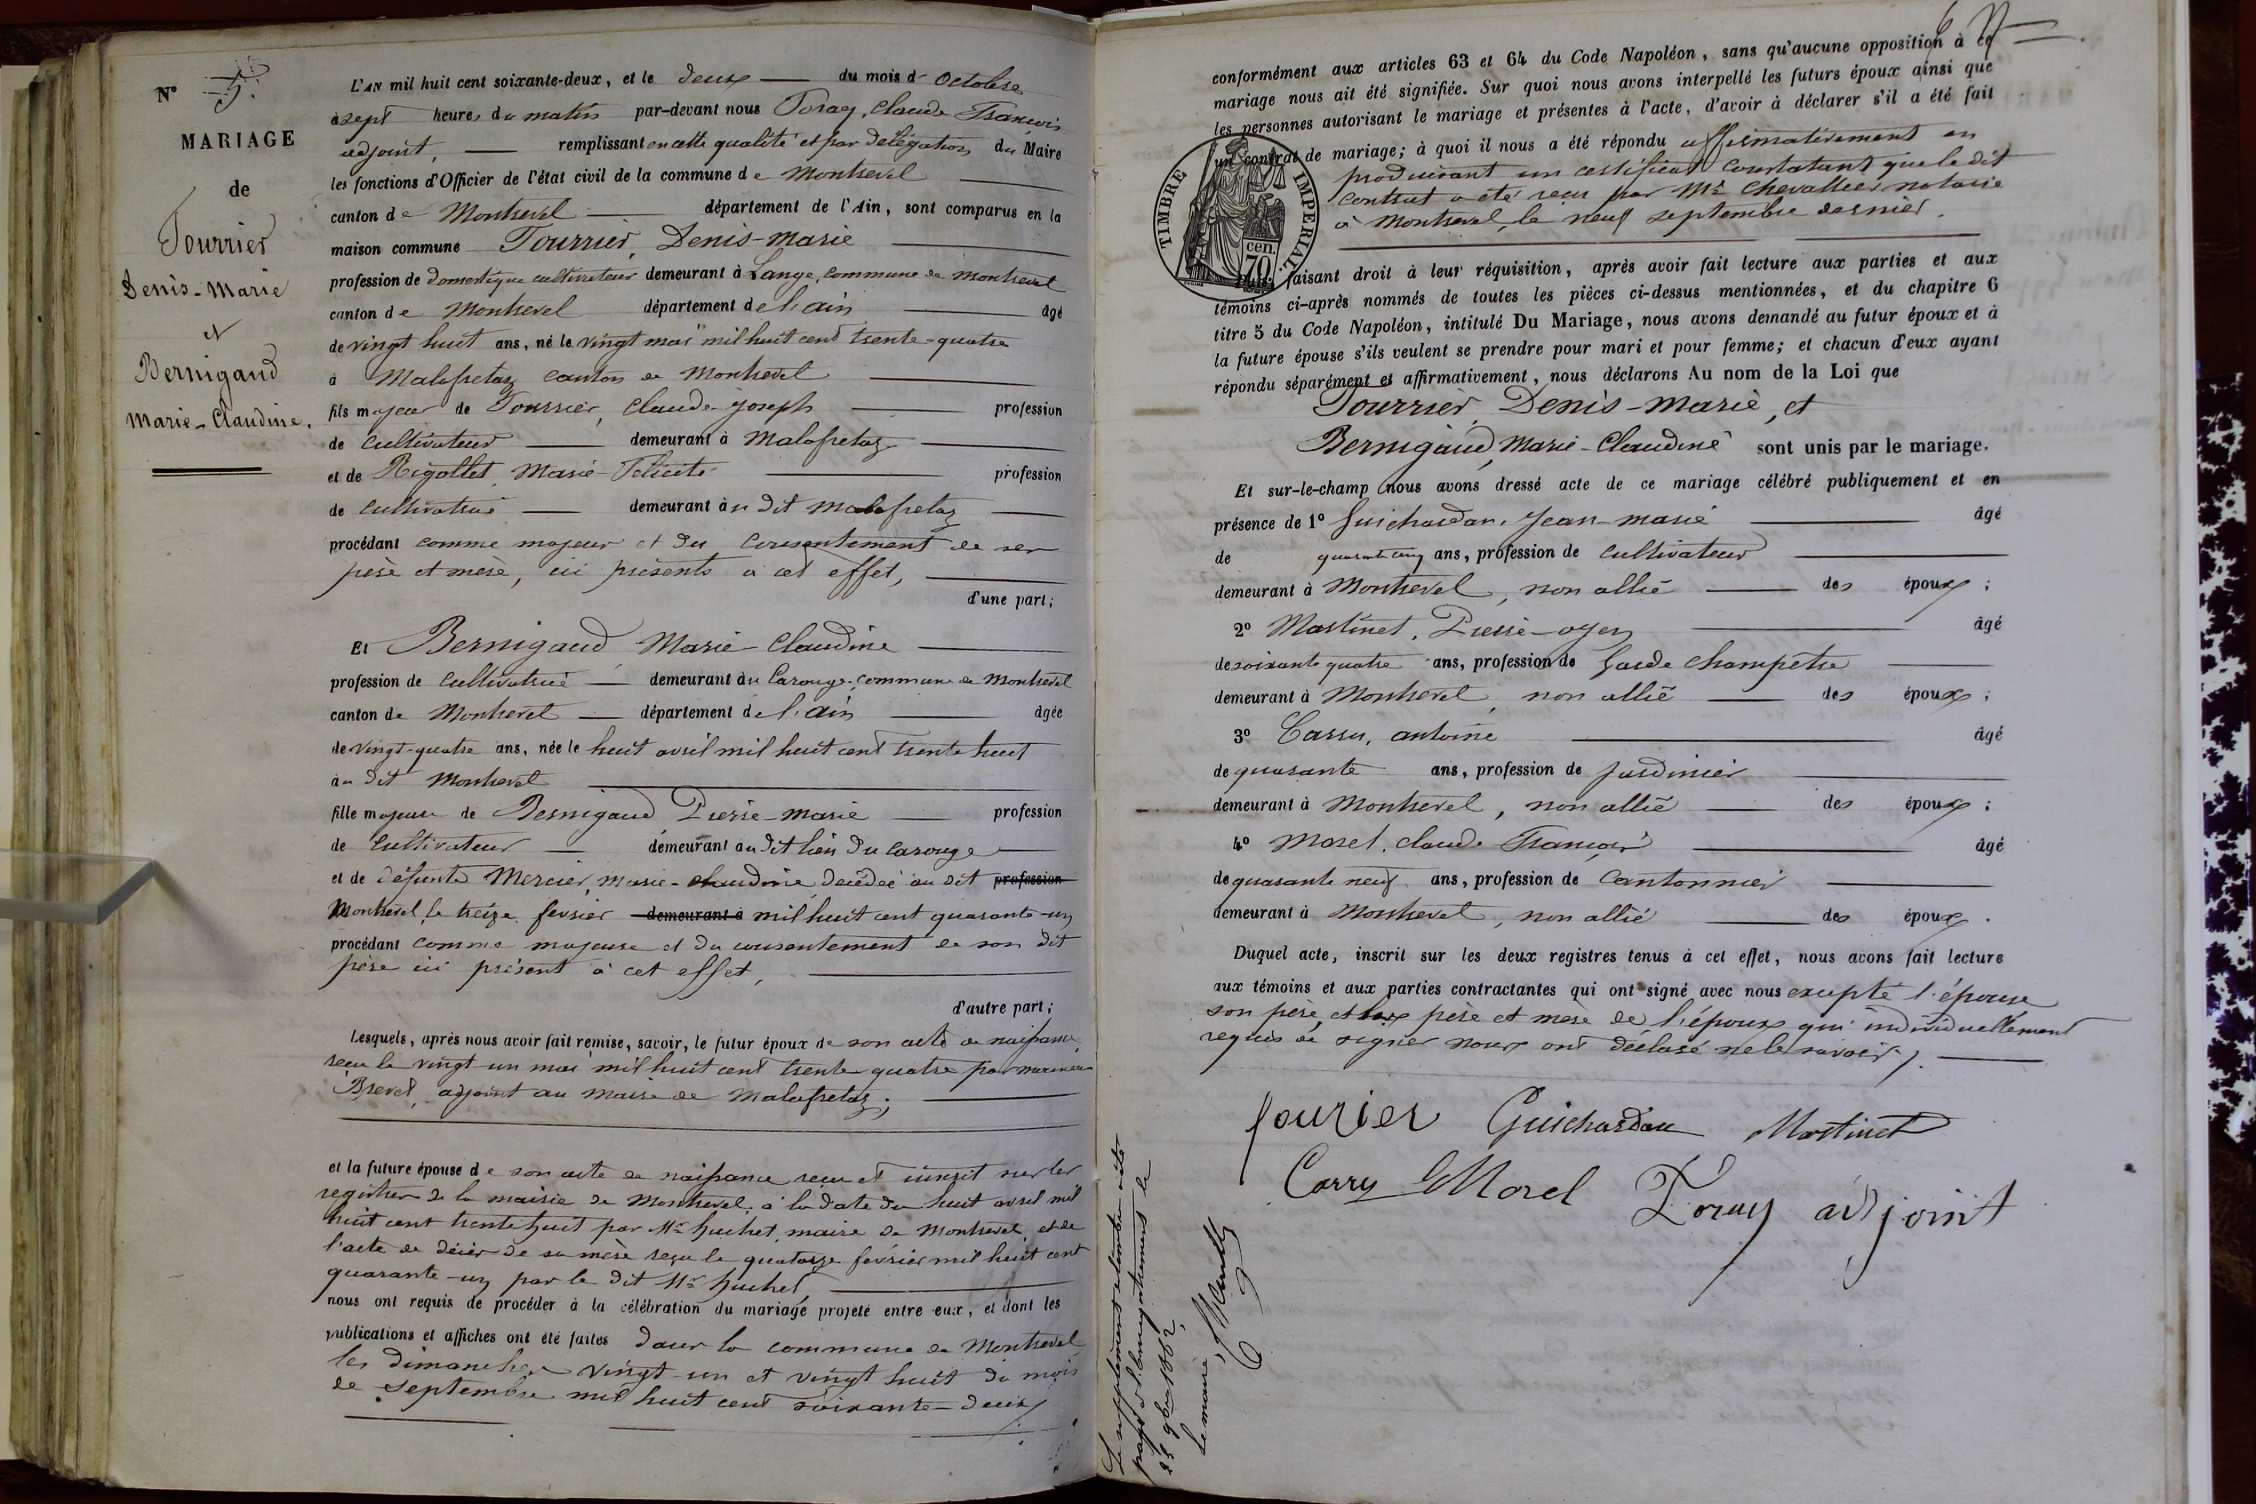 N° 5.
MARIAGE
de
Fourrier
Denis-Marie
et
Bernigaud
Marie-Claudine.
L'AN mil huit cent soixante-deux, et le deux du mois d'Octobre
à sept heures du matin par-devant nous Poray, Claude François
adjoint, remplissant en cette qualité et par délégation du Maire
les fonctions d'Officier de l'état civil de la commune de Montrevel
canton de Montrevel département de l'Ain, sont comparus en la
maison commune Fourrier, Denis-Marie
profession de domestique cultivateur demeurant à Lange, commune de Montrevel
canton de Montrevel département de l'ain âgé
de vingt huit ans, né le vingt mai mil huit cent trente-quatre
à Malafretaz canton de Montrevel
fils majeur de Fourrier, Claude-Joseph profession
de cultivateur demeurant à Malafretaz
et de Rigollet, Marie-Félicité profession
de cultivatrice demeurant au dit Malafretaz
procédant comme majeur et du consentement de ses
père et mère, ici présents à cet effet,
d'une part;
Et Bernigaud Marie-Claudine
profession de cultivatrice demeurant au Carouge, commune de Montrevel
canton de Montrevel département de l'ain âgée
de vingt-quatre ans, née le huit avril mil huit cent trente huit
au dit Montrevel
fille majeure de Bernigaud Pierre-Marie profession
de cultivateur demeurant au dit lieu du Carouge
et de défunte Mercier, Marie-Claudine, décédée au dit profession
Montrevel, le treize février demeurant à mil huit cent quarante-un
procédant comme majeure et du consentement de son dit
père ici présent à cet effet,
d'autre part;
Lesquels, après nous avoir fait remise, savoir, le futur époux de son acte de naissance,
reçu le vingt un mai mil huit cent trente quatre par
Brevet, adjoint au Maire de Malafretaz;
et la future épouse de son acte de naissance reçu et inscrit sur les
registres de la mairie de Montrevel, à la date du huit avril mil
huit cent trente huit par Mr huchet, maire de Montrevel, et de
l'acte de décès de sa mère reçu le quatorze février mil huit cent
quarante-un par le dit Mr huchet
nous ont requis de procéder à la célébration du mariage projeté entre eux, et dont les
publications et affiches ont été faites dans la commune de Montrevel
les dimanches vingt-un et vingt huit du mois
de septembre mil huit cent soixante-deux
conformément aux articles 63 et 64 du Code Napoléon, sans qu'aucune opposition à ce
mariage nous ait été signifiée. Sur quoi nous avons interpellé les futurs époux ainsi que
les personnes autorisant le mariage et présentes à l'acte, d'avoir à déclarer s'il a été fait
un contrat de mariage; à quoi il nous a été répondu affirmativement en
produisant un certificat constatant que le dit
contrat a été reçu par Mr Chevallier notaire
à Montrevel, le neuf septembre dernier.
TIMBRE IMPERIAL.
70 cen
Puis, faisant droit à leur réquisition, après avoir fait lecture aux parties et aux
témoins ci-après nommés de toutes les pièces ci-dessus mentionnées, et du chapitre 6
titre 5 du Code Napoléon, intitulé Du Mariage, nous avons demandé au futur époux et à
la future épouse s'ils veulent se prendre pour mari et pour femme; et chacun d'eux ayant
répondu séparément et affirmativement, nous déclarons Au nom de la Loi que
Fourrier, Denis-Marie, et
Bernigaud, Marie-Claudine sont unis par le mariage.
Et sur-le-champ nous avons dressé acte de ce mariage célébré publiquement et en
présence de 1° Guichardan, Jean-Marie âgé
de quarante cinq ans, profession de cultivateur
demeurant à Montrevel, non allié des époux;
2° Martinet, Pierre-oyen âgé
de soixante quatre ans, profession de Garde Champêtre
demeurant à Montrevel, non allié des époux;
3° Carry, antoine âgé
de quarante ans, profession de jardinier
demeurant à Montrevel, non allié des époux;
4° Morel, Claude François âgé
de quarante neuf ans, profession de Cantonnier
demeurant à Montrevel, non allié des époux.
Duquel acte, inscrit sur les deux registres tenus à cet effet, nous avons fait lecture
aux témoins et aux parties contractantes qui ont signé avec nous excepté l'épouse
son père, et les père et mère de l'époux qui individuellement
requis de signer nous ont déclaré ne le savoir.
fourier Guichardan Martinet
Carry Morel Poray adjoint
Le supplément
payé à l'enregistrement le
25 9bre 1862,
Le maire,